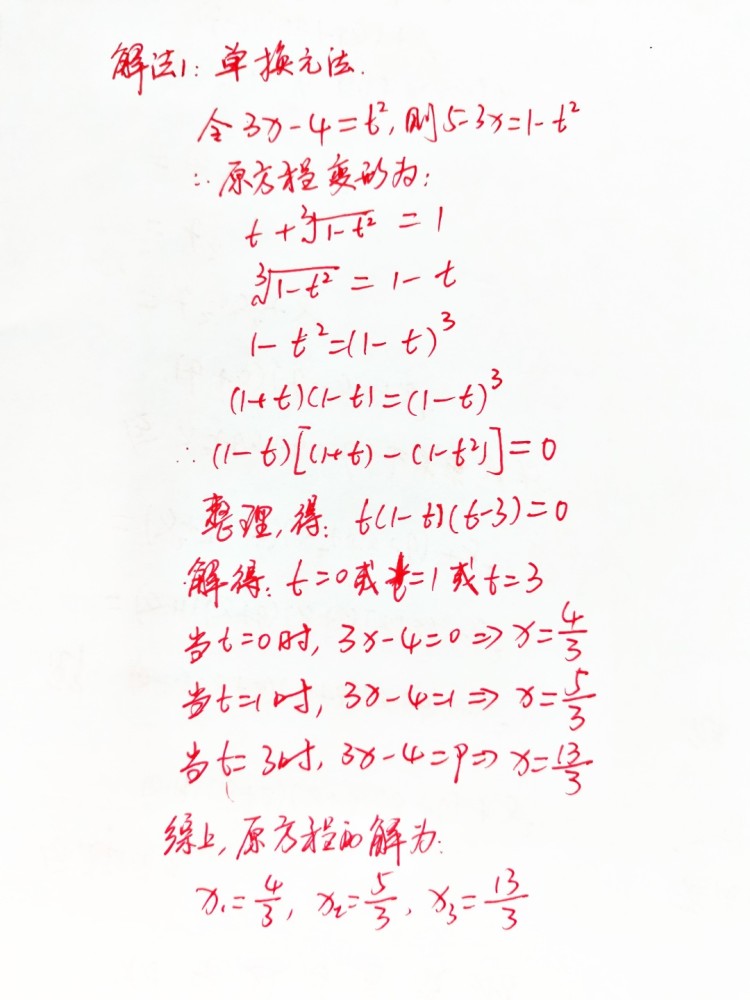 解法1: 单换元法.
令3x-4=t²,则5-3x=1-t²
∴原方程变形为:
t+∛(1-t²) = 1
∛(1-t²) = 1-t
1-t²=(1-t)³
(1+t)(1-t)=(1-t)³
∴(1-t)[(1+t)-(1-t²)]=0
整理,得: t(1-t)(t-3)=0
解得: t=0或t=1或t=3
当t=0时, 3x-4=0⇒x=4/3
当t=1时, 3x-4=1⇒x=5/3
当t=3时, 3x-4=9⇒x=13/3
综上,原方程的解为:
x₁=4/3, x₂=5/3, x₃=13/3